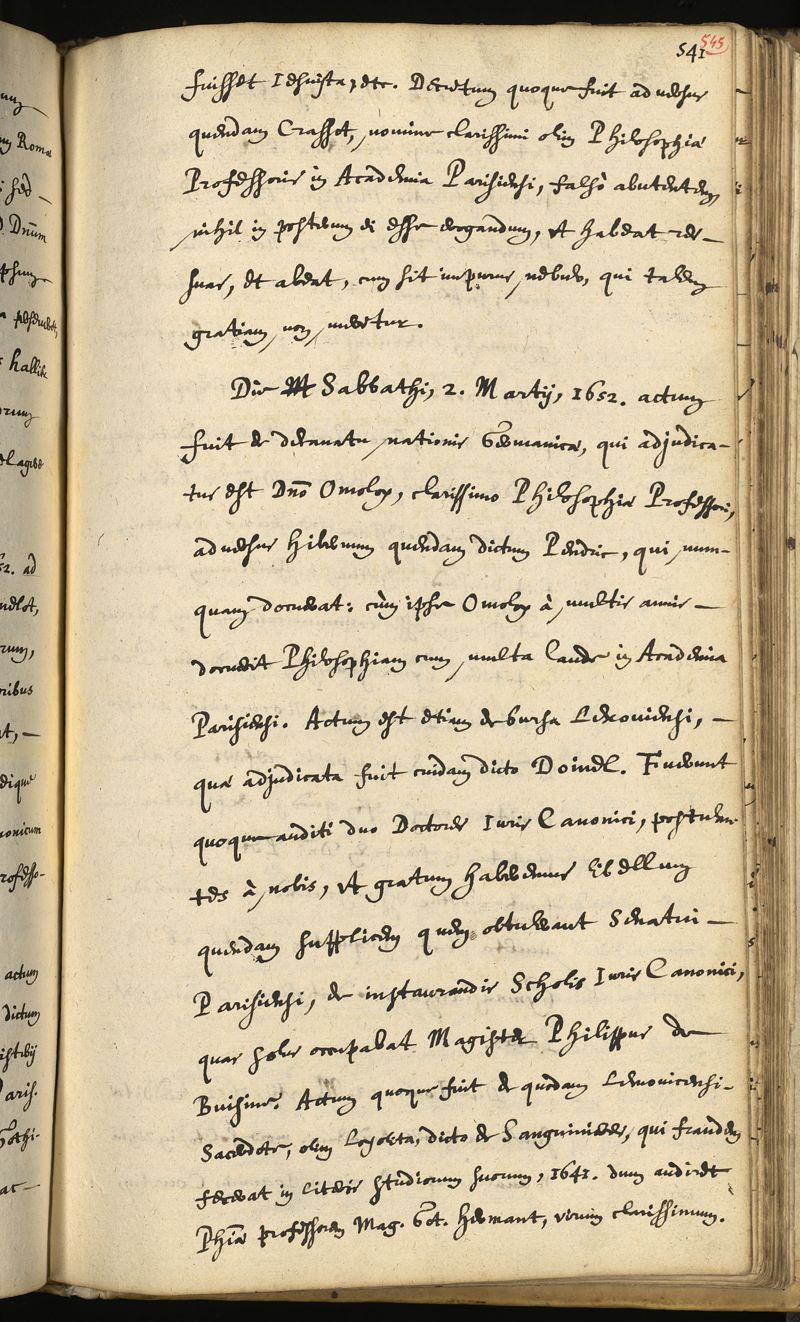 541 545
fuisset Iesuista, etc. Decretum quoque fuit adversus
quendam Crasset, nomine clarissimi olim Philosophiæ
Professoris in Academia Parisiensi, falsò abutentem,
nihil in posterum ei esse erogandum, ut habeat res
suas, et abeat, cum sit impurus nebulo, qui talem
gratiam non meretur.
Die Sabbathi, 2. Martij, 1652. actum
fuit de decanatu nationis Germanicæ, qui adjudica-
tus est Dnō Omoloy, clarissimo Philosophiæ Professori,
adversus Hibernum quendam dictum Pendric, qui num-
quam docuerat: cùm ipse Omoloy à multis annis
docuerit Philosophiam cum multa laude in Academia
Parisiensi. Actum est etiam de bursa Lexoviensi,
quæ adjudicata fuit cuidam dicto Doinel. Fuerunt
quoque auditi duo Doctores Iuris Canonici, postulan-
tes à nobis, ut gratum haberemus libellum
quendam supplicem quem obtulerant Senatui
Parisiensi, de instaurandis Scholis Iuris Canonici,
quas solus occupabat Magister Philippus de
Buisine. Actum quoque fuit de quodam Lemovicensi
Sacerdote, olim Loyolita, dicto de Sanguinieres, qui fraudem
fecerat in literis studiorum suorum, 1641. dum audiret
Phiæ professorem Mag. God. Hermant, virum clarissimum.